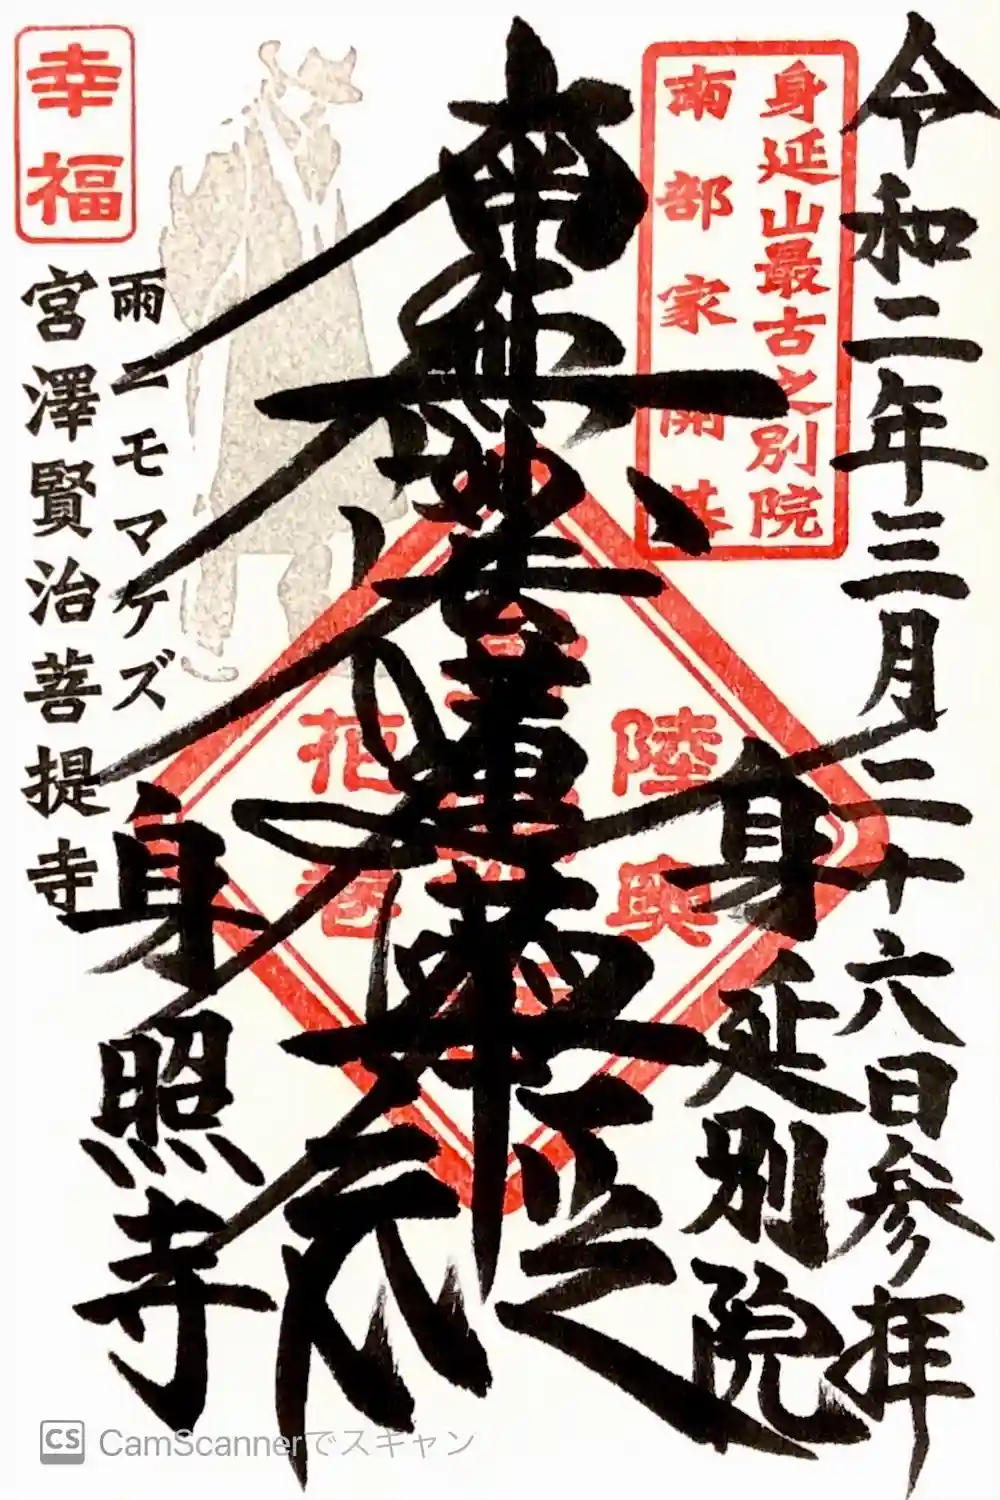 令和二年三月二十六日参拝
身延山最古之別院
南部家開基
身延別院
陸奥
南無妙法蓮華経
花巻
幸福
雨ニモマケズ
宮澤賢治菩提寺
身照寺
CS CamScannerでスキャン